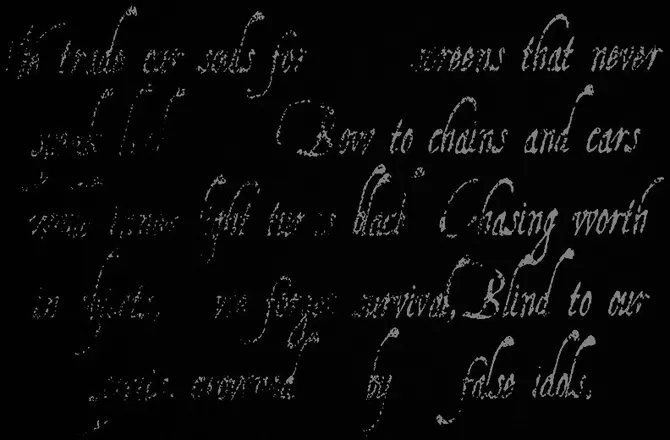 We trade our souls for screens that never
Bow to chains and cars
light turns black Chasing worth
in we forget survival, Blind to our
crowned by false idols.